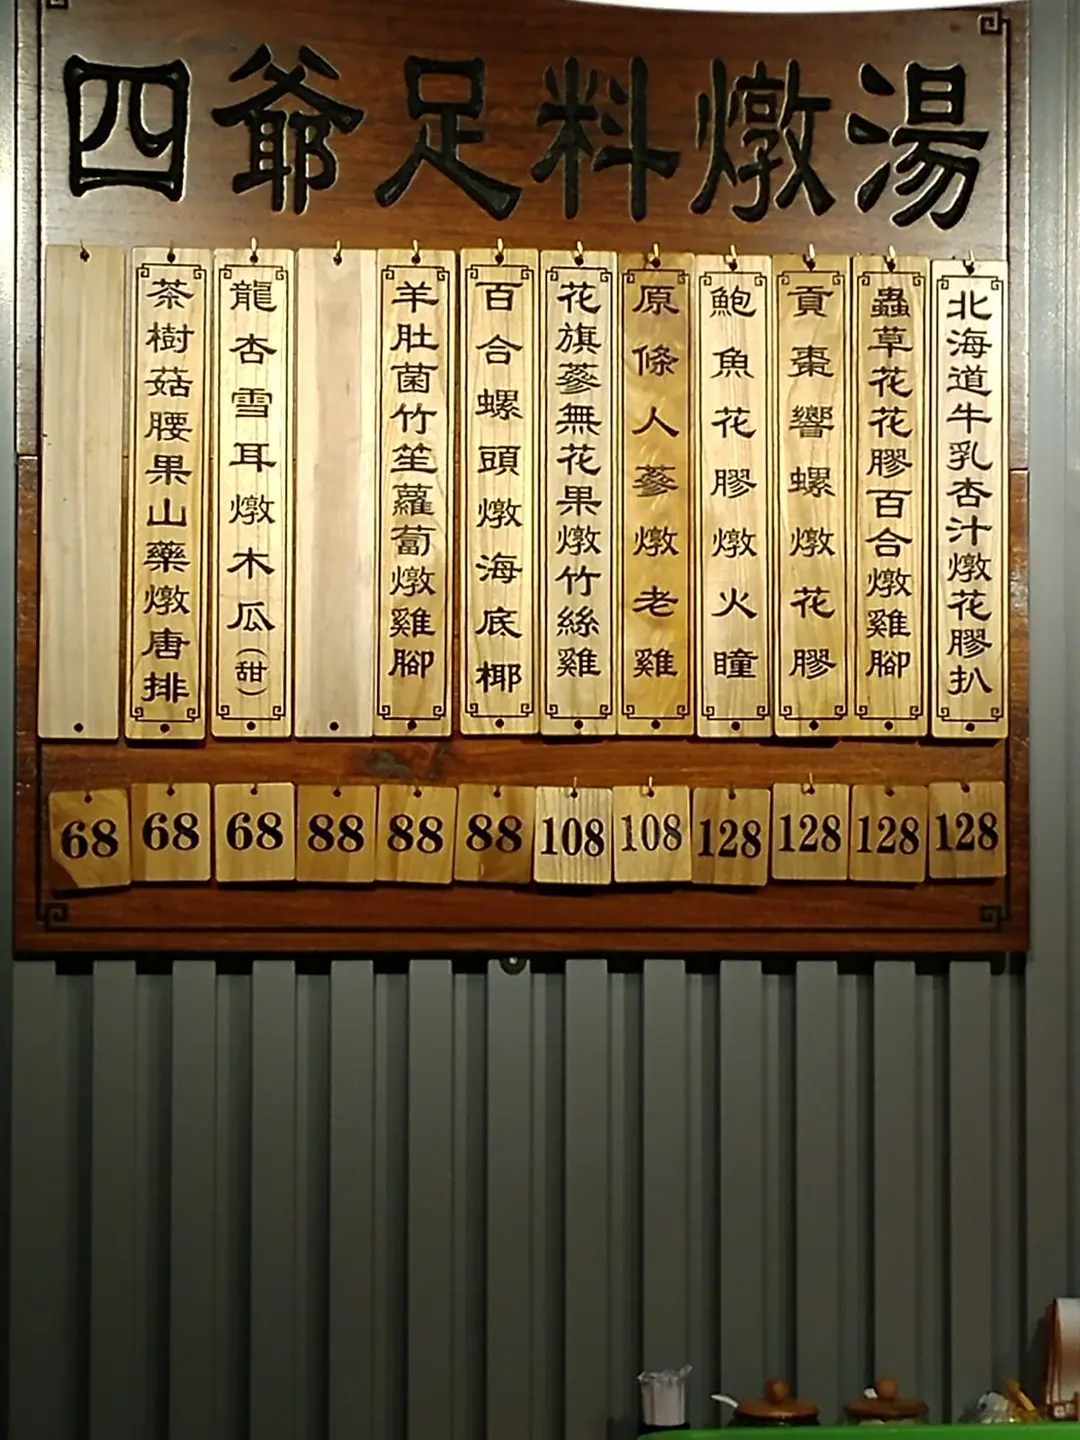 四爺足料燉湯
北海道牛乳杏汁燉花膠扒
蟲草花花膠百合燉雞腳
貢棗響螺燉花膠
鮑魚花膠燉火瞳
原條人蔘燉老雞
花旗蔘無花果燉竹絲雞
百合螺頭燉海底椰
羊肚菌竹笙蘿蔔燉雞腳
龍杏雪耳燉木瓜(甜)
茶樹菇腰果山藥燉唐排
68 68 68 88 88 88 108 108 128 128 128 128